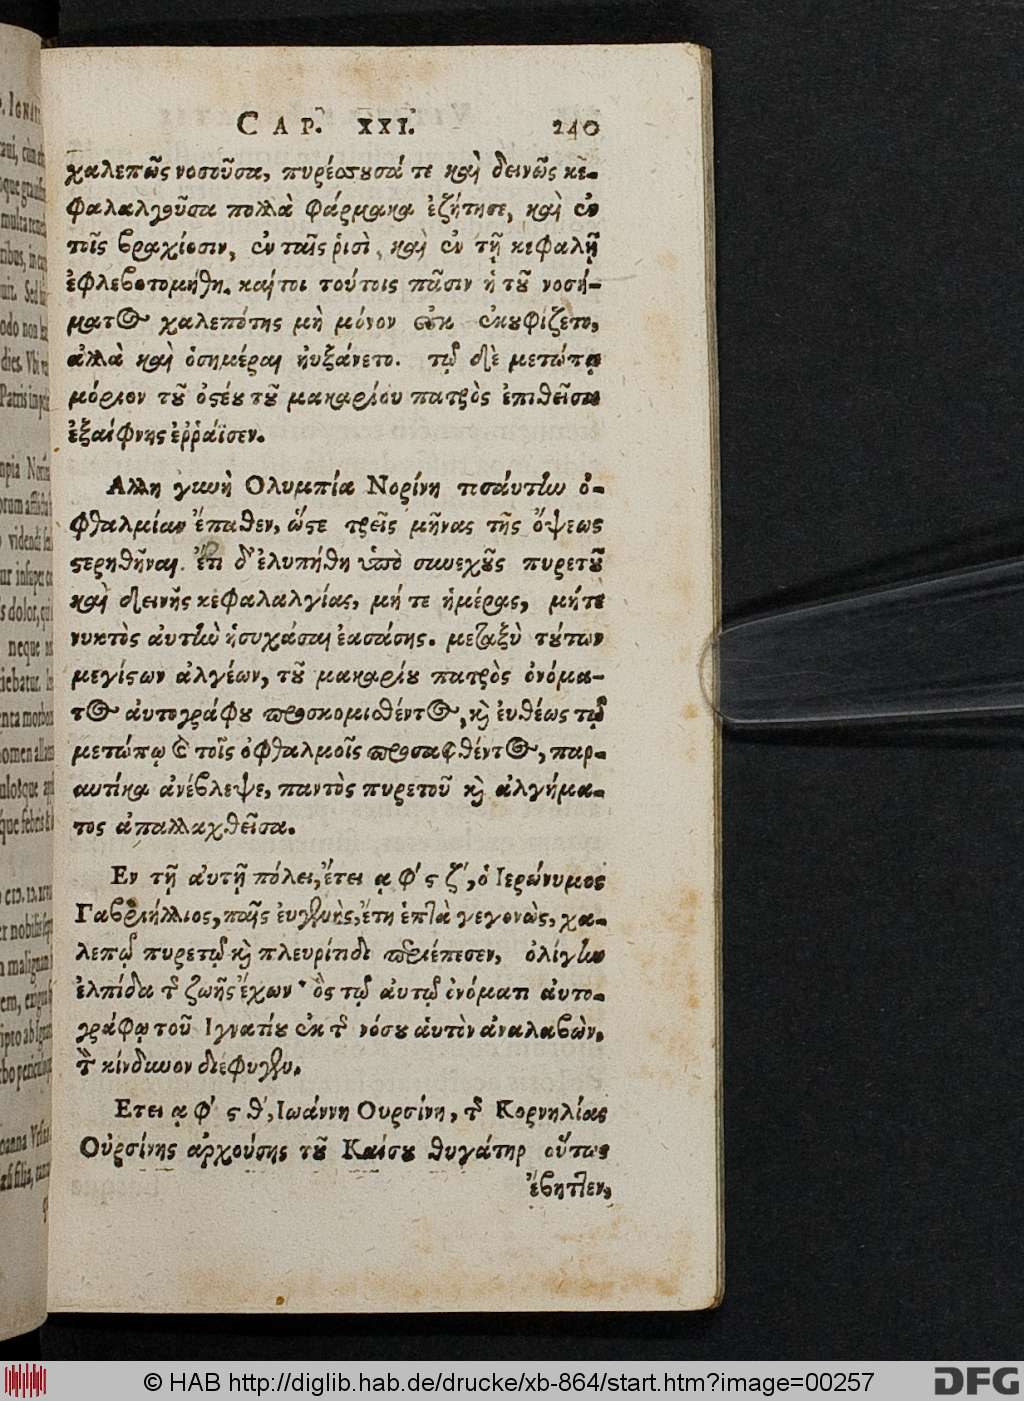 CAP. XXI. 240
χαλεπῶς νοσοῦσα, πυρέσσουσά τε καὶ δεινῶς κε-
φαλαλγοῦσα πολλὰ φάρμακα ἐζήτησε, καὶ ἐν
τοῖς βραχίοσιν, ἐν ταῖς ῥισὶ, καὶ ἐν τῇ κεφαλῇ
ἐφλεβοτομήθη. καίτοι τούτοις πᾶσιν ἡ τοῦ νοσή-
ματος χαλεπότης μὴ μόνον οὐκ ἐκουφίζετο,
ἀλλὰ καὶ ὁσημέραι ηὐξάνετο. τῷ δὲ μετώπῳ
μόριον τοῦ ὀστέου τοῦ μακαρίου πατρὸς ἐπιθεῖσα
ἐξαίφνης ἐῤῥάϊσεν.
Αλλη γυνὴ Ολυμπία Νορίνη τισαύτην ὀ-
φθαλμίαν ἔπαθεν, ὥστε τρεῖς μῆνας τῆς ὄψεως
στερηθῆναι. ἔτι δ' ἐλυπήθη ὑπὸ συνεχοῦς πυρετοῦ
καὶ δεινῆς κεφαλαλγίας, μήτε ἡμέρας, μήτε
νυκτὸς αὐτὴν ἡσυχάσαι ἐασάσης. μεταξὺ τούτων
μεγίστων ἀλγέων, τοῦ μακαρίου πατρὸς ὀνόμα-
τος αὐτογράφου προσκομισθέντος, καὶ εὐθέως τῷ
μετώπῳ καὶ τοῖς ὀφθαλμοῖς προσαφθέντος, παρ-
αυτίκα ἀνέβλεψε, παντὸς πυρετοῦ καὶ ἀλγήμα-
τος ἀπαλλαχθεῖσα.
Εν τῇ αὐτῇ πόλει, ἔτει ͵α φ' ϛ ζ', ὁ Ιερώνυμος
Γαβριήλλιος, παῖς εὐγενὴς, ἔτη ἑπτὰ γεγονὼς, χα-
λεπῷ πυρετῷ καὶ πλευρίτιδι περιέπεσεν, ὀλίγην
ἐλπίδα τῆς ζωῆς ἔχων· ὃς τῷ αὐτῷ ὀνόματι αὐτο-
γράφῳ τοῦ Ιγνατίου ἐκ τῆς νόσου αὑτὸν ἀναλαβὼν,
τὸν κίνδυνον διέφυγεν.
Ετει ͵α φ' ϛ θ', Ιωάννη Ουρσίνη, τῆς Κορνηλίας
Οὐρσίνης ἀρχούσης τοῦ Καίσου θυγάτηρ οὕτως
ἔβηττεν,
© HAB http://diglib.hab.de/drucke/xb-864/start.htm?image=00257
DFG